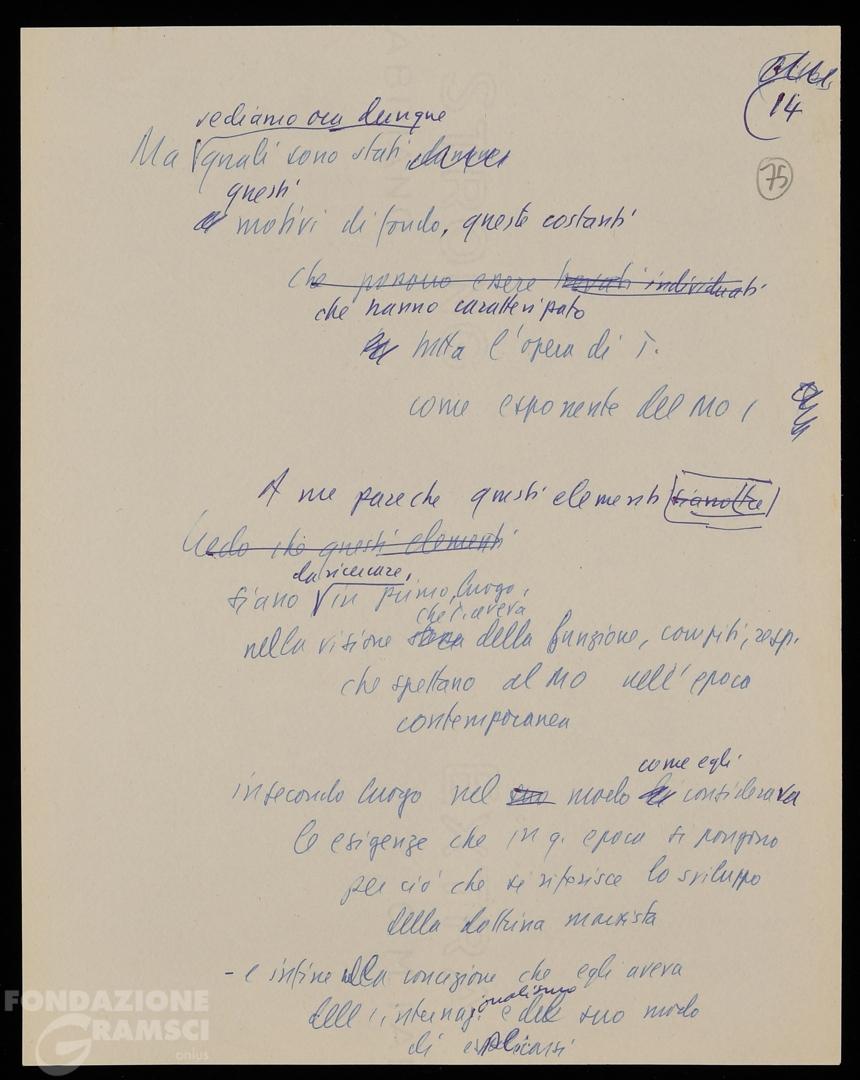 14
75
vediamo ora dunque
Ma quali sono stati
questi
motivi di fondo, queste costanti
che possono essere trovati individuati
che hanno caratterizzato
tutta l'opera di T.
come esponente del MO,
A me pare che questi elementi siano
Credo che questi elementi
da ricercare,
siano in primo luogo,
che T. aveva
nella visione della funzione, compiti, resp.
che spettano al MO nell'epoca
contemporanea
in secondo luogo nel suo modo
come egli
considerava
le esigenze che in q. epoca si pongono
per ciò che si riferisce lo sviluppo
della dottrina marxista
- e infine nella concezione che egli aveva
dell'internazionalismo e del suo modo
di esplicarsi
FONDAZIONE
GRAMSCI
onlus